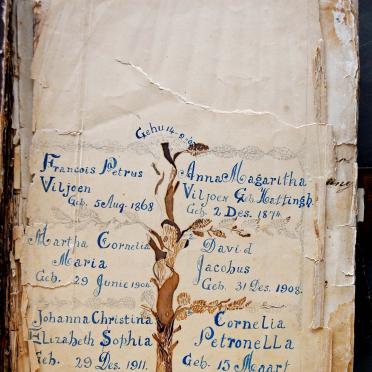 Gehu 14-9-
Francois Petrus
Viljoen
Geb. 5 Aug. 1868
Anna Magaritha
Viljoen Geb. Hattingh
Geb. 2 Des. 1874
Martha Cornelia
Maria
Geb. 29 Junie 1904
David
Jacobus
Geb. 31 Des. 1908.
Johanna Christina
Elizabeth Sophia
Geb. 29 Des. 1911.
Cornelia
Petronella
Geb. 15 Maart